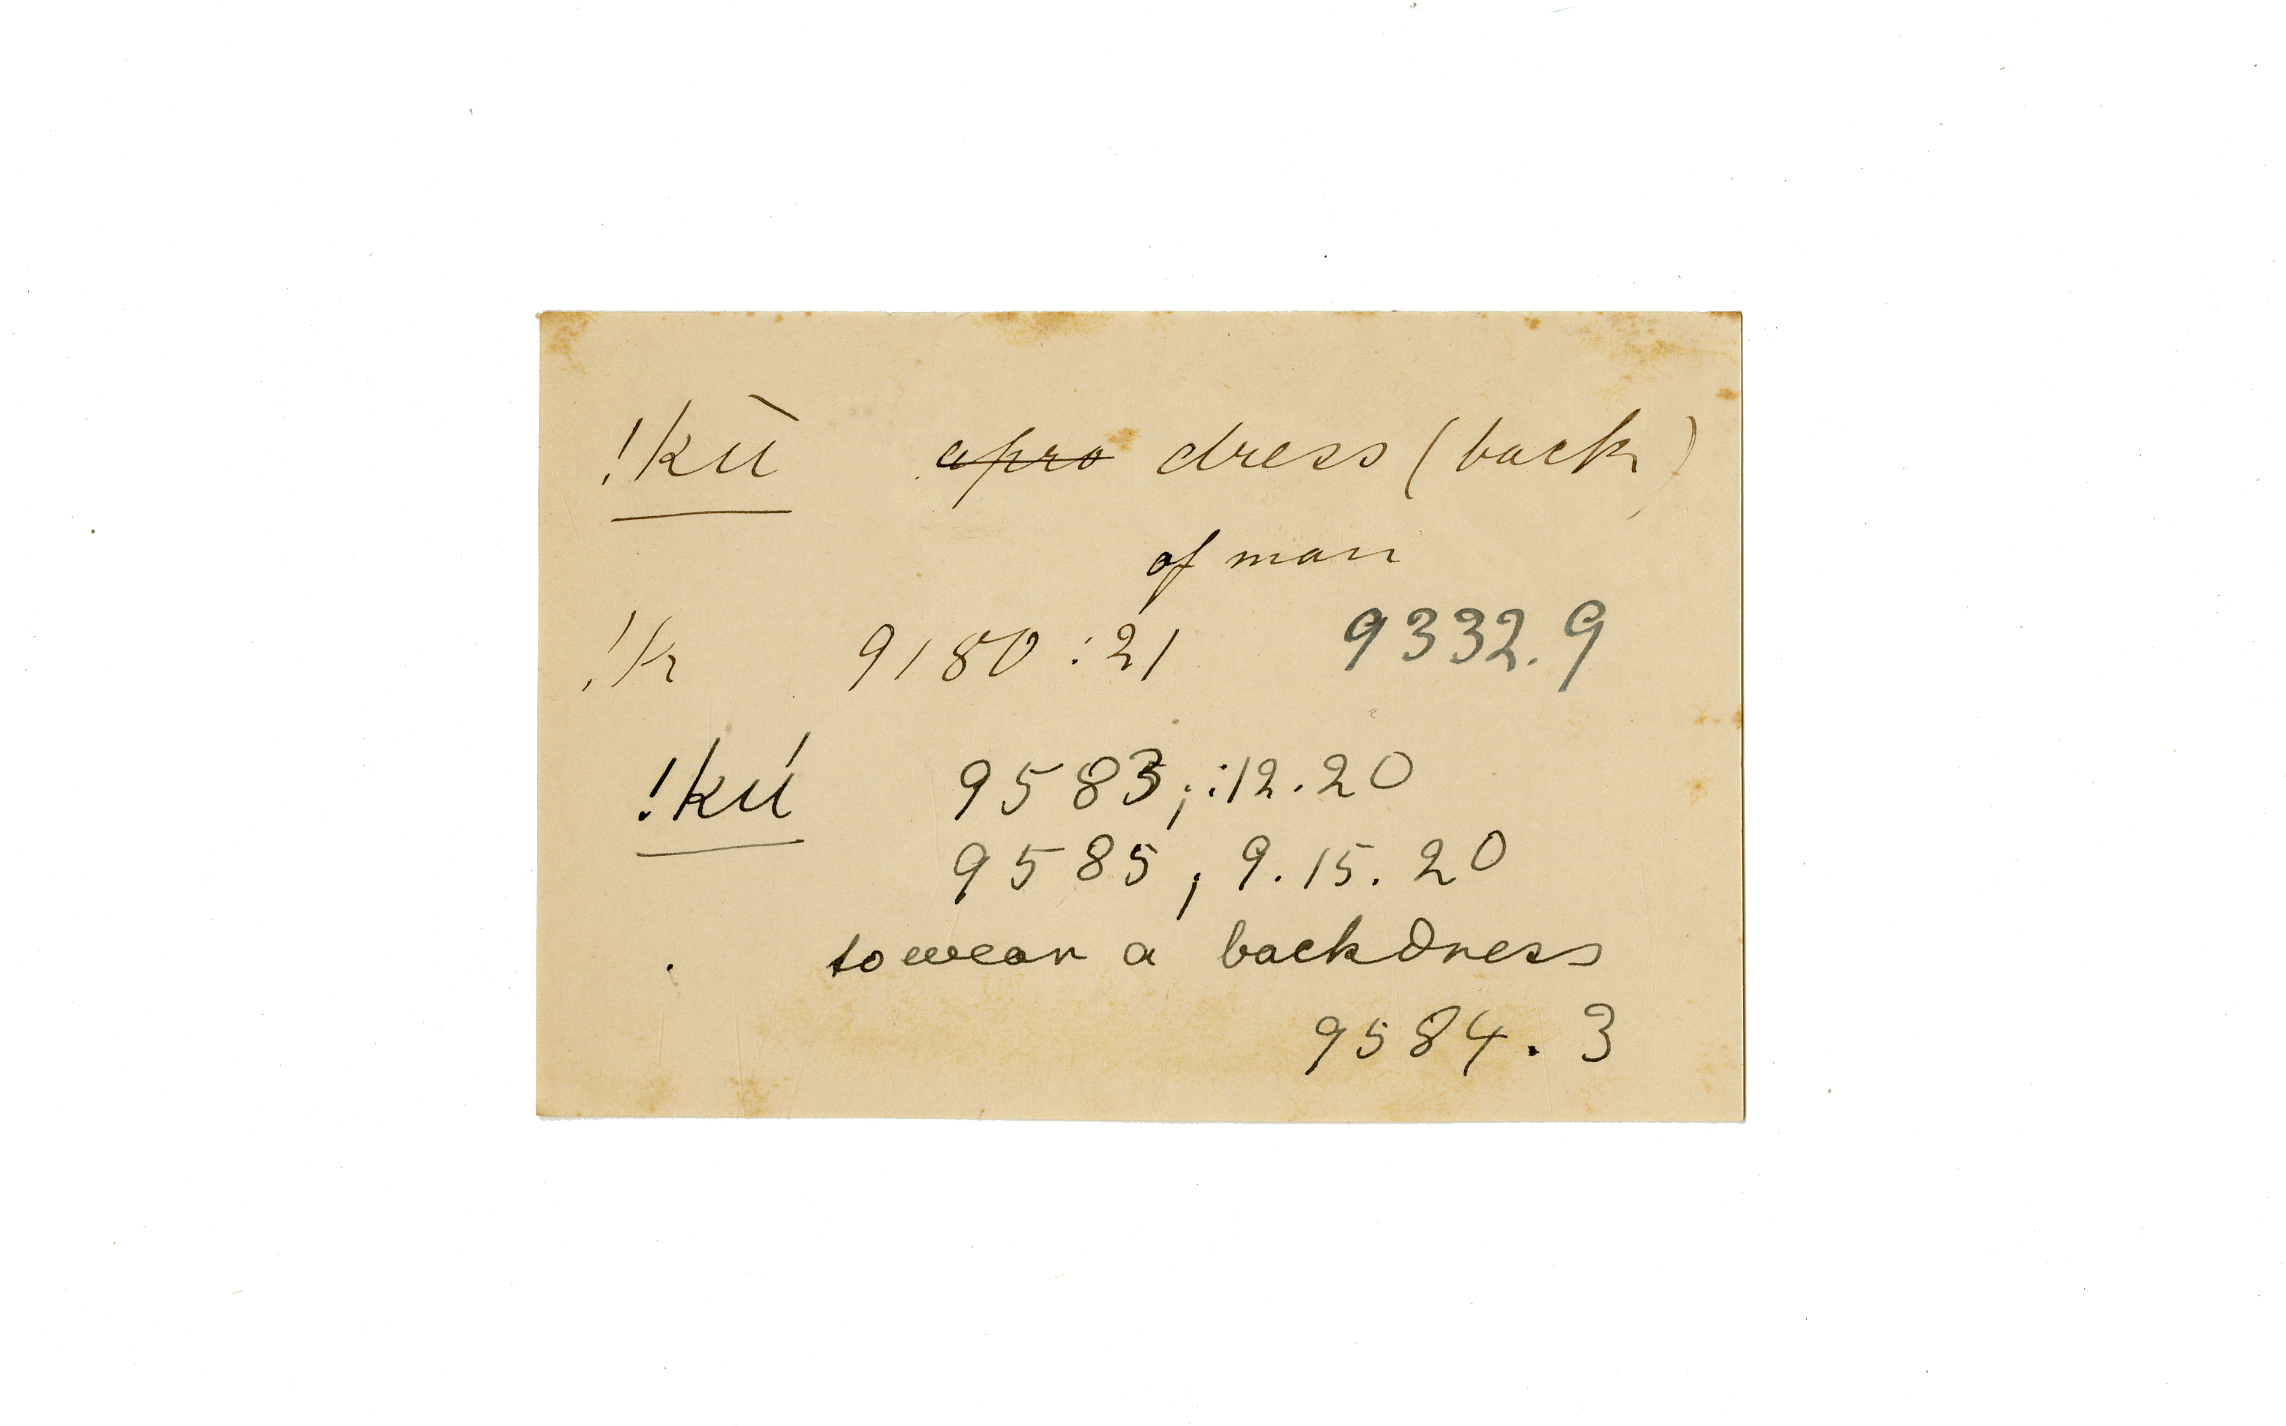 !kù apro dress (back)
of man
!k 9180:21 9332.9
!kú 9583;:12.20
9585, 9.15.20
to wear a backdress
9584.3